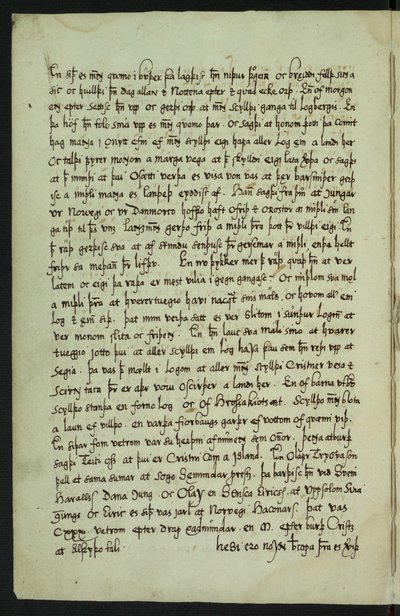 En siþan es menn qvomo i bvþer þa lagþisc hann niþur þorgeir oc breiddi felld sinn a
sic oc hvillþi þann dag allan oc Nottena epter oc qvad ecke orþ. En of morgon
enn epter settisc hann vpp oc gerþi orþ at menn scylldi ganga til Logbergis. En
þa hof hann tolo sina vpp es menn qvomo þar. Oc sagþi at honom þotti þa comit
hag manna i onyt efni ef menn scylldi eigi hafa aller Log ein a landi her
Oc talþi fyrer monom a marga vega at þat scylldi eigi lata verþa Oc sagþi
at þat mundi at þvi osetti verþa es visa von vas at þær barsmiþer gerþ
isc a miþli manna es landeþ eyddisc af. Hann sagþi fra þvi at Konungar
vr Norvegi oc vr Danmorco hofþo haft ofriþ oc orostor a miþli sin lan
ga tiþ til þess unz Landsmenn gerþo friþ a miþli þeira þott þeir villdi eigi. En
þat raþ gerþisc sva at af stundo sendusc þeir gersemar a miþli enda hellt
friþr sa meþan þeir lifþo. En nv þykker mer þat raþ qvaþ hann at ver
latem oc eigi þa raþa er mest vilia i gegn gangasc. Oc miþlom sva mal
a miþli þeira at hverertveggio hafi nacqvat sins mals. oc hofom aller ein
Log oc einn siþ. þat mun verþa satt es ver slitom i sundur Logen at
ver monom slita oc friþenn. En hann lauc sva mali sino at hvarer
tveggio jotto þvi at aller scylldi ein log hafa þau sem hann reþi vpp at
segia. þa vas þat mællt i Logom at aller menn scylldi Cristner vesa oc
scirn taca þeir er aþr voro oscirþer a landi her. En of barna utburþ
scylldo standa en forno log oc of Hrossakiotsát. Scylldo menn blota
a laun ef villdo. en varþa fiorbaugs garþr ef vottom of qvæmi viþ.
En siþar fom vetrom var su heiþni afnumin sem onor. þenna atburþ
sagþi Teitr oss at þvi er Cristni com a Island. En Olafr Tryggvason
fell et sama sumar at sogo Sæmundar prests. þa barþisc hann viþ Svein
Haralldsson Dana Konung. oc Olaf enn Sensca Eirics son. at Uppsolom Svia
gungs oc Eiric es siþan vas jarl at Norvegi Haconarson. þat vas
CXXX vetrom epter drap Eadmundar. en M. epter burþ Crists
at alþyþo tali.